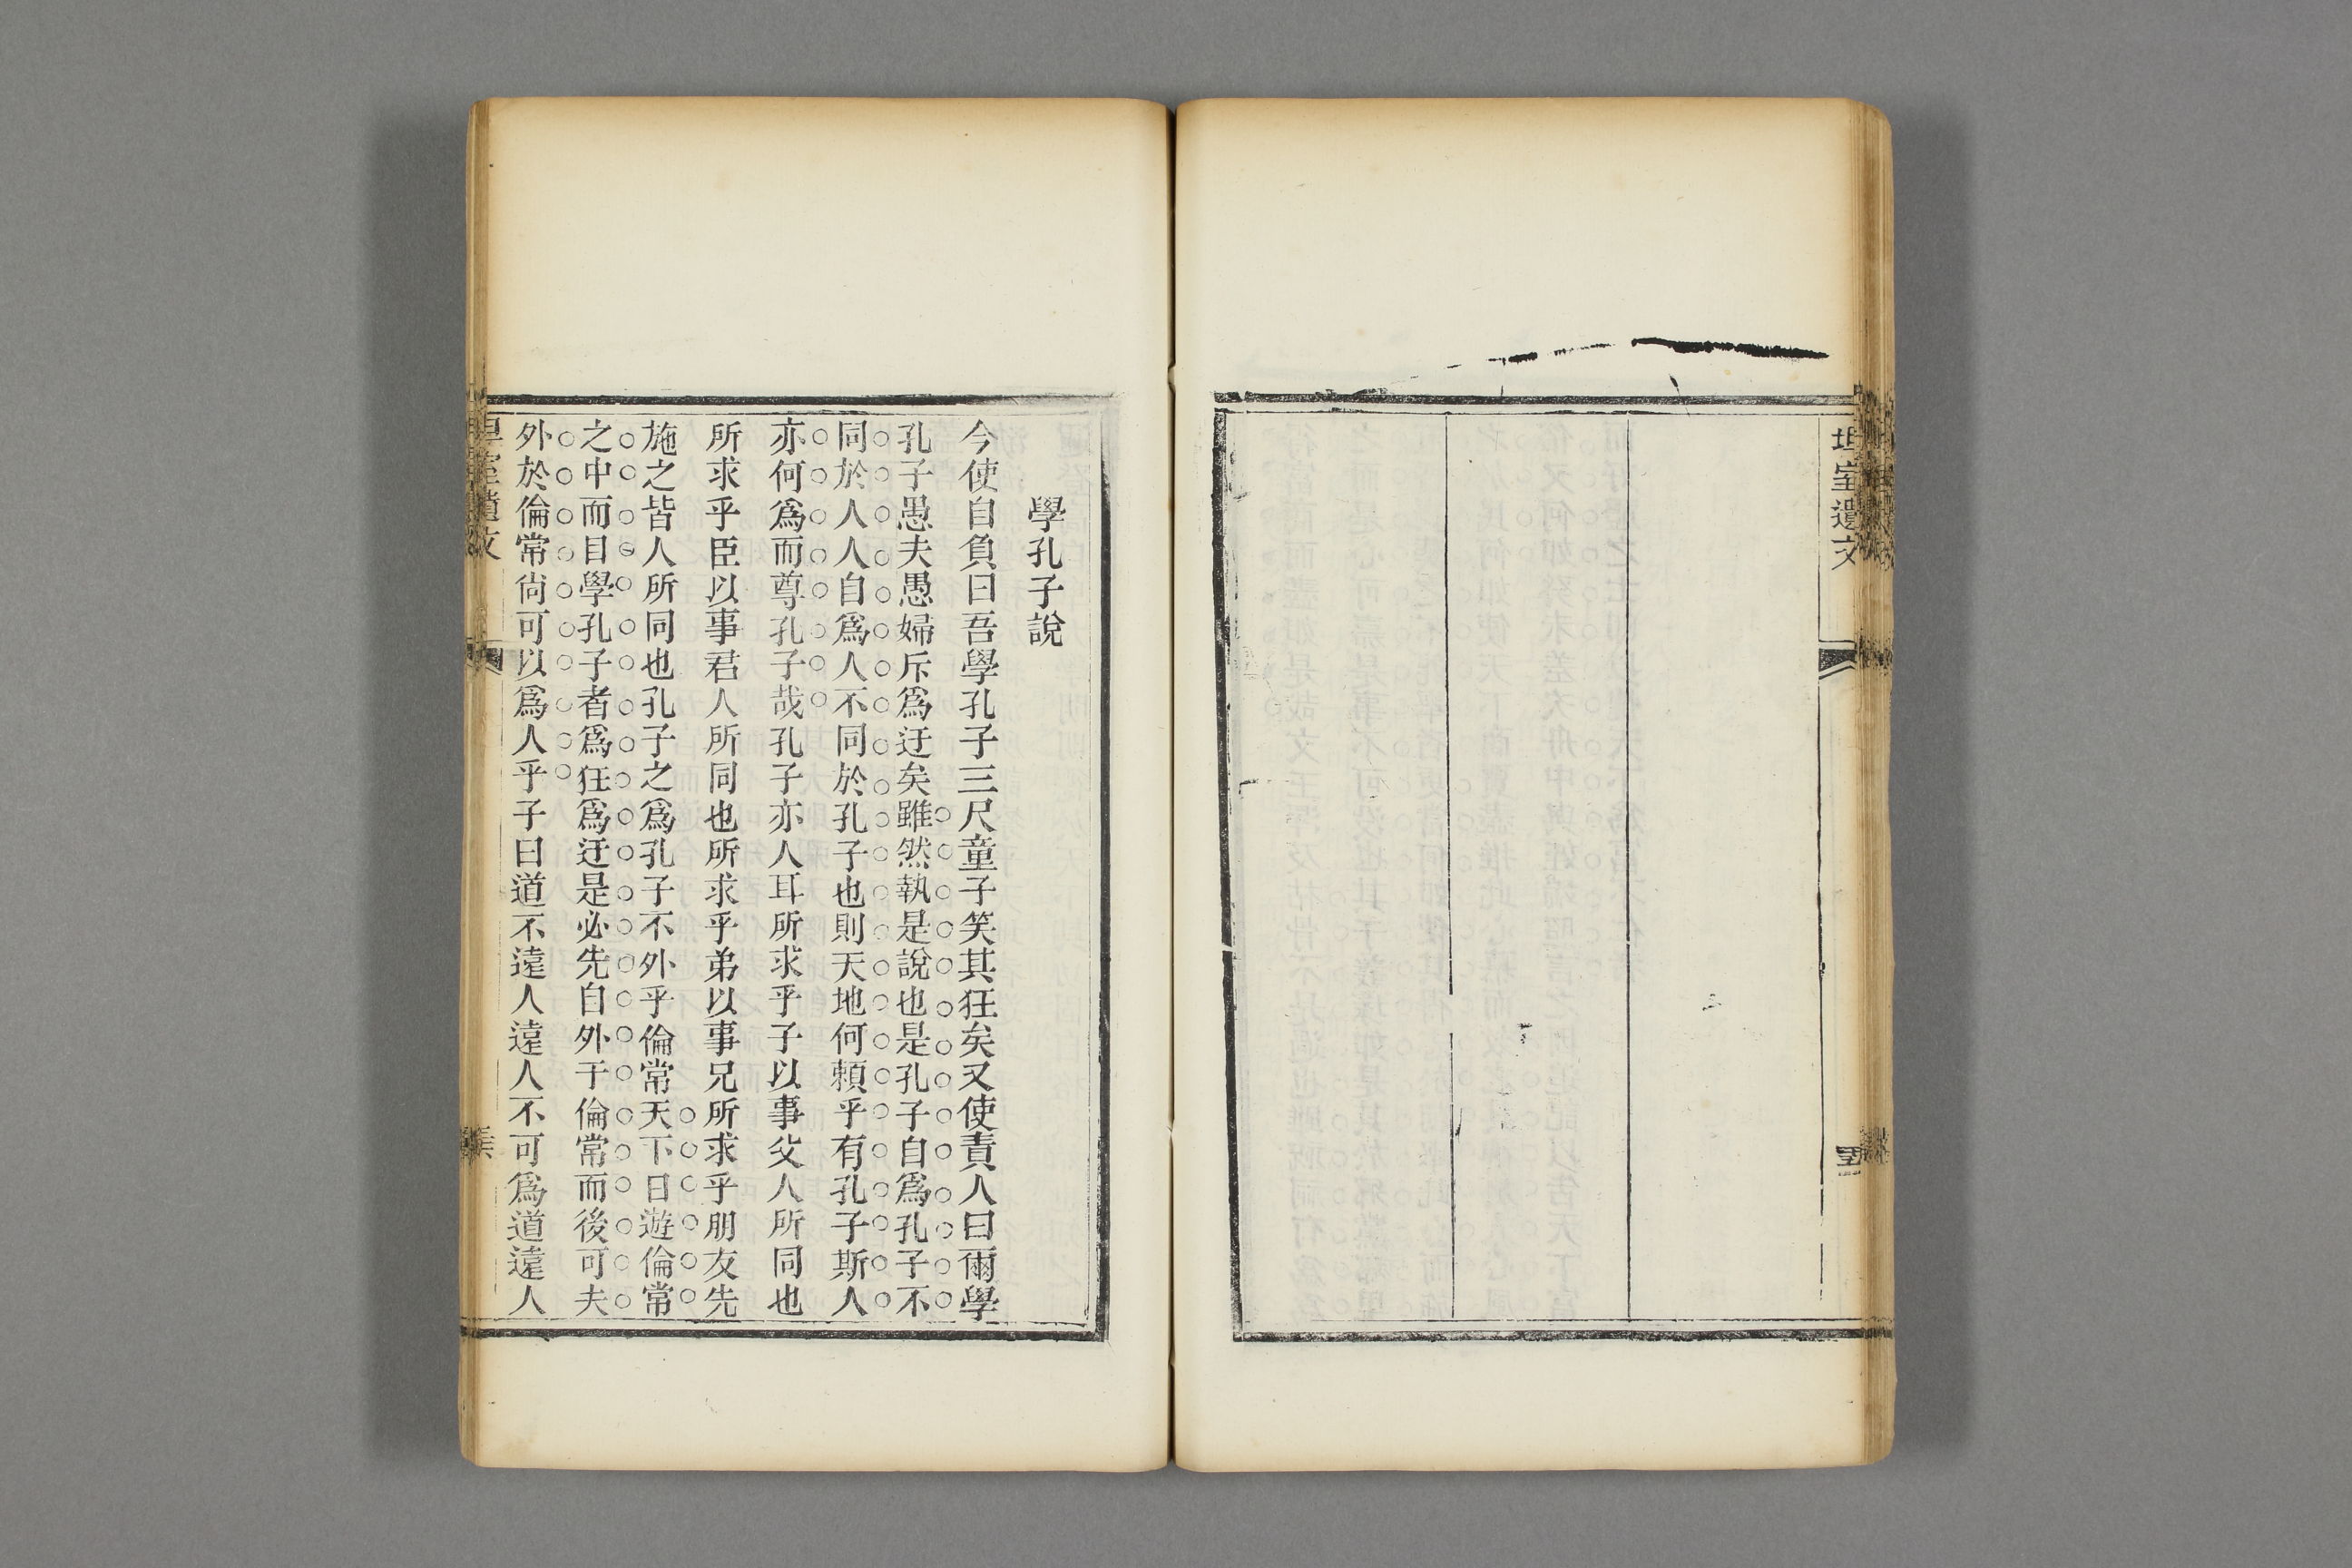 坦室遺文
學孔子說
今使自負曰吾學孔子三尺童子笑其狂矣又使責人曰爾學
孔子愚夫愚婦斥爲迂矣雖然執是說也是孔子自爲孔子不
同於人人自爲人不同於孔子也則天地何賴乎有孔子斯人
亦何爲而尊孔子哉孔子亦人耳所求乎子以事父人所同也
所求乎臣以事君人所同也所求乎弟以事兄所求乎朋友先
施之皆人所同也孔子之爲孔子不外乎倫常天下日遊倫常
之中而目學孔子者爲狂爲迂是必先自外于倫常而後可夫
外於倫常尙可以爲人乎子曰道不遠人遠人不可爲道遠人